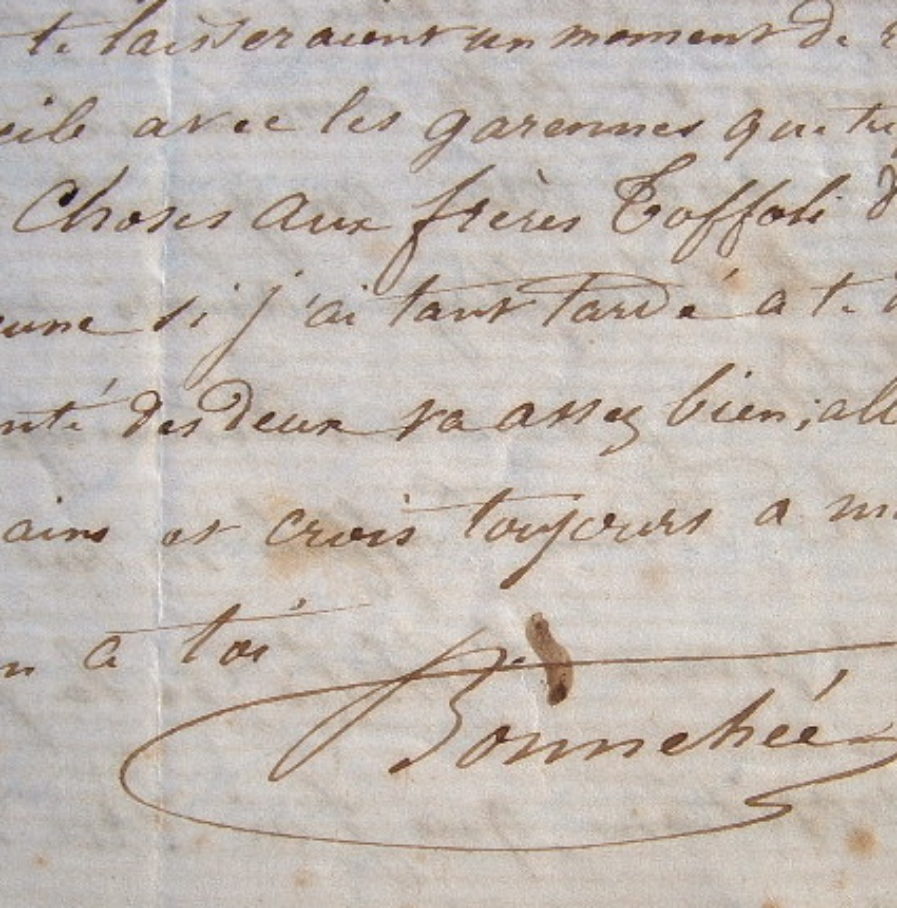 te laisseraient un moment de
avec les garennes que tu
Choses aux frères Toffoli
si j'ai tant tardé a te
des deux va assez bien; all
ains et crois toujours a m
n a toi
Bonnehée